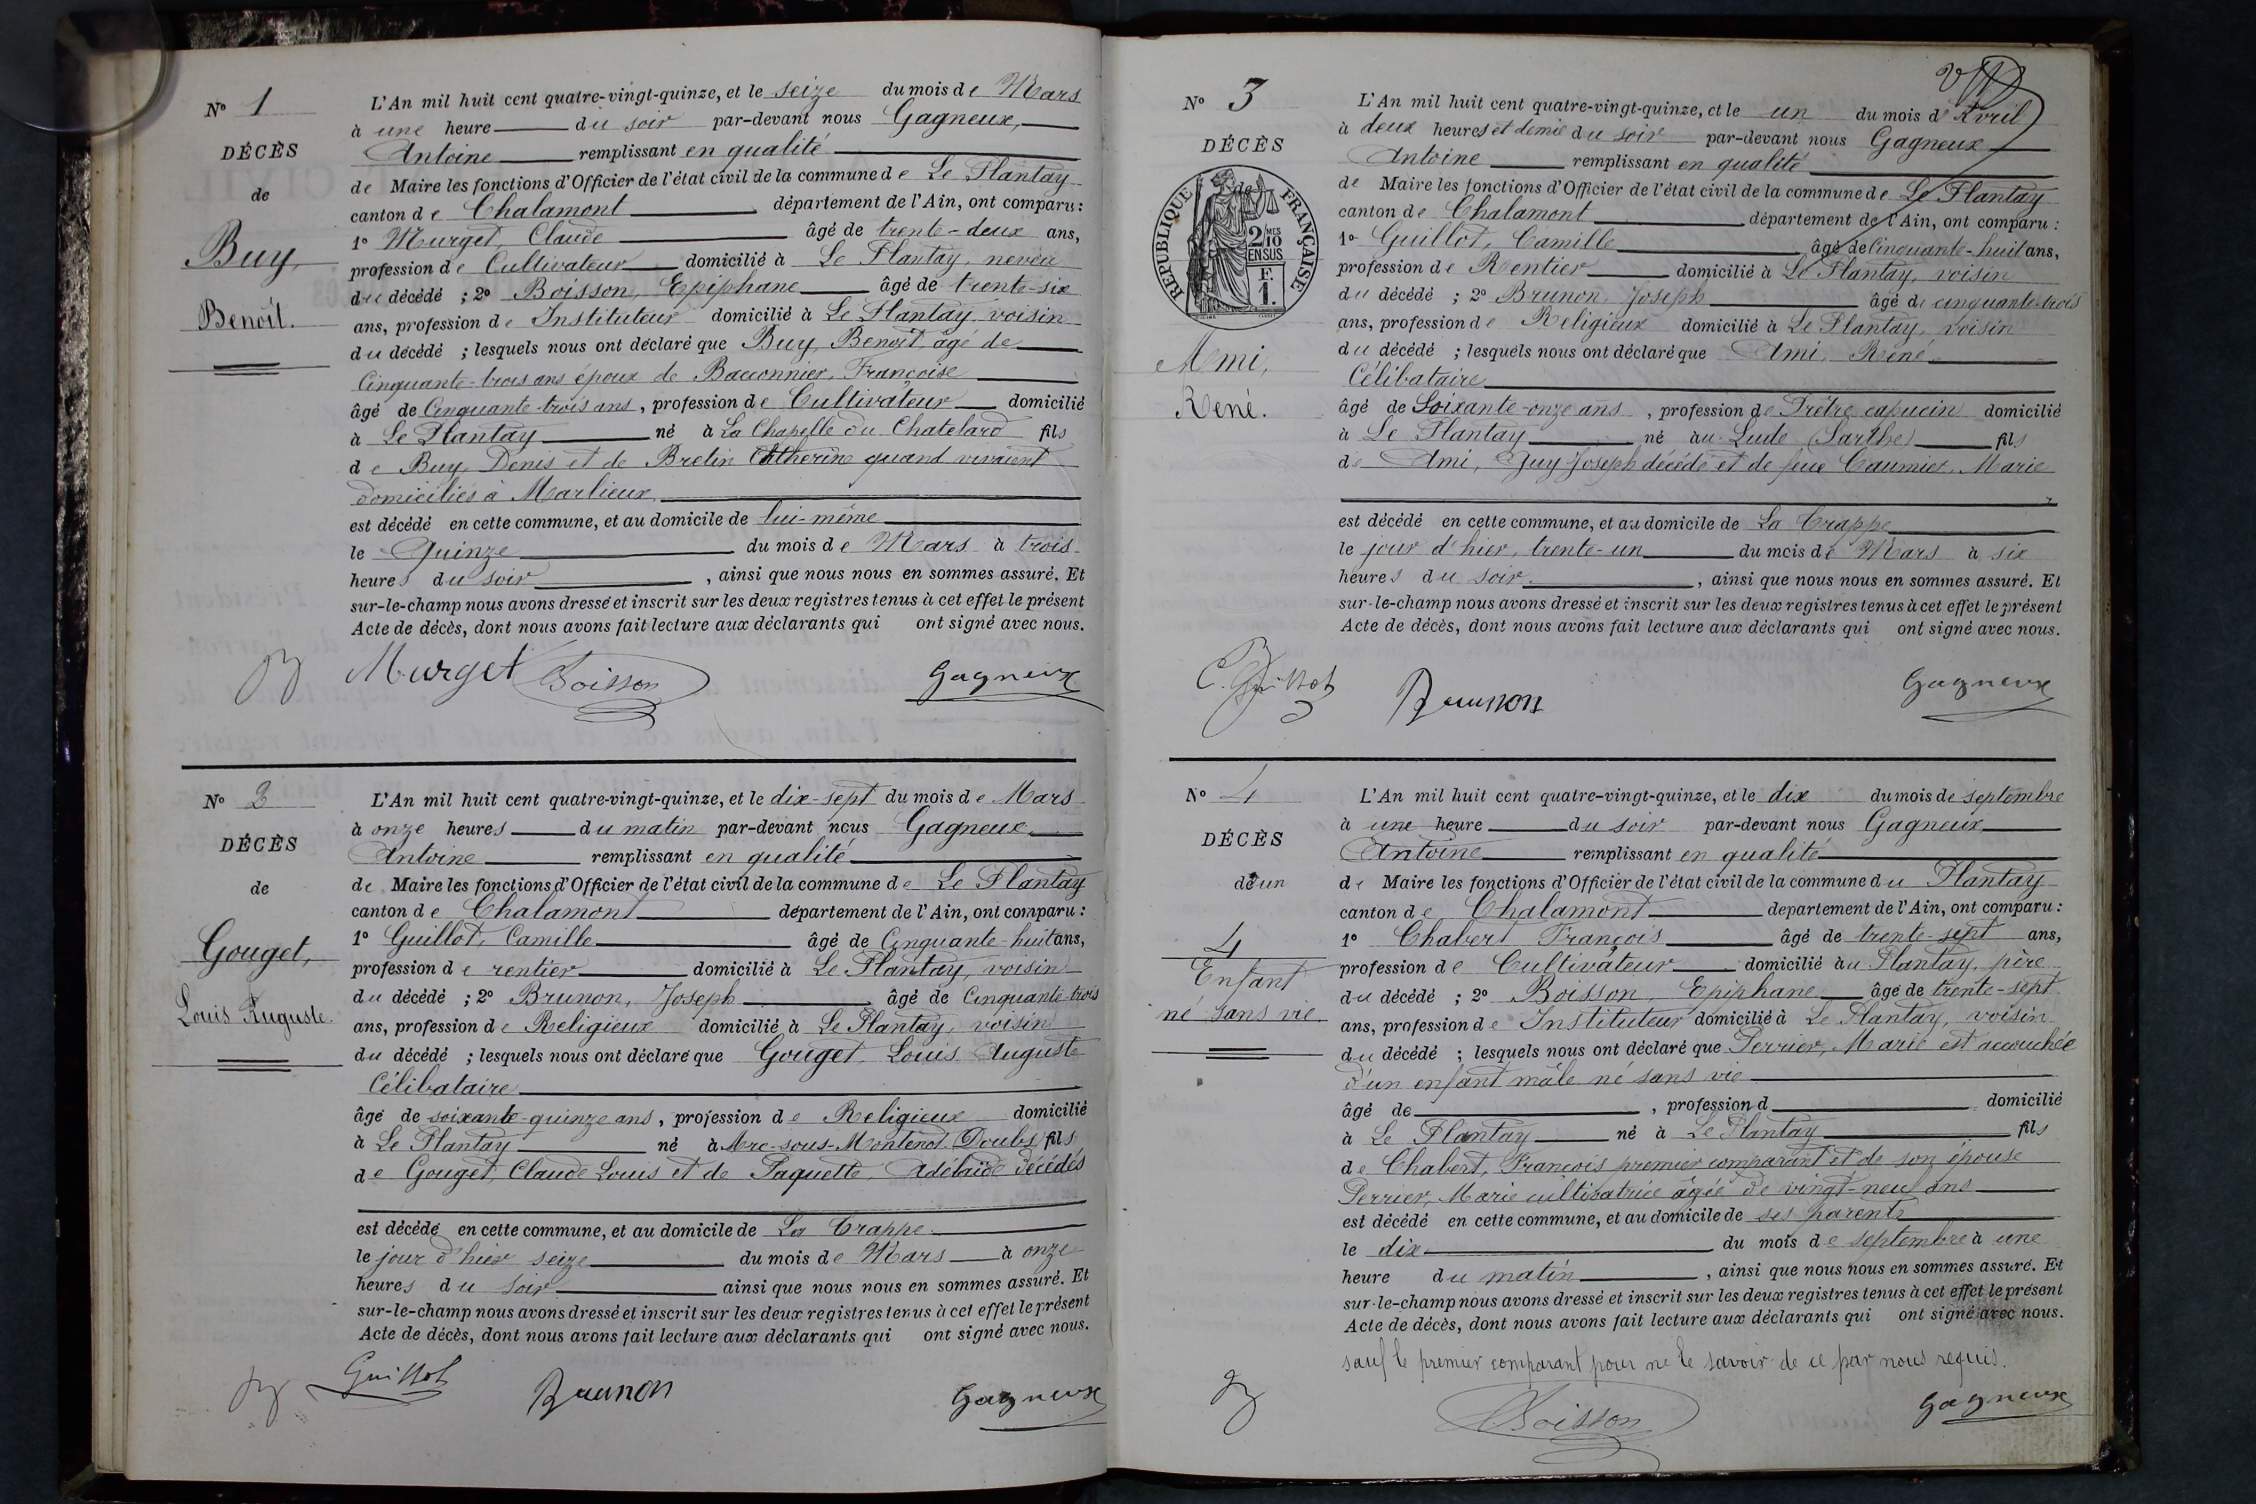 N° 1
DÉCÈS
de
Buy,
Benoît.
L'An mil huit cent quatre-vingt-quinze, et le seize du mois de Mars
à une heure du soir par-devant nous Gagneux,
Antoine remplissant en qualité
de Maire les fonctions d'Officier de l'état civil de la commune de Le Plantay
canton de Chalamont département de l'Ain, ont comparu :
1° Murget, Claude âgé de trente-deux ans,
profession de Cultivateur domicilié à Le Plantay, neveu
du décédé ; 2° Boisson, Epiphane âgé de trente-six
ans, profession de Instituteur domicilié à Le Plantay, voisin
du décédé ; lesquels nous ont déclaré que Buy, Benoît, âgé de
Cinquante-trois ans époux de Bacconnier, Françoise
âgé de Cinquante-trois ans, profession de Cultivateur domicilié
à Le Plantay né à La Chapelle du Chatelard fils
de Buy, Denis et de Bretin Catherine quand vivaient
domiciliés à Marlieux,
est décédé en cette commune, et au domicile de lui-même
le Quinze du mois de Mars à trois
heures du soir, ainsi que nous nous en sommes assuré. Et
sur-le-champ nous avons dressé et inscrit sur les deux registres tenus à cet effet le présent
Acte de décès, dont nous avons fait lecture aux déclarants qui ont signé avec nous.
Murget Boisson Gagneux
N° 2
DÉCÈS
de
Gouget,
Louis Auguste.
L'An mil huit cent quatre-vingt-quinze, et le dix-sept du mois de Mars
à onze heures du matin par-devant nous Gagneux
Antoine remplissant en qualité
de Maire les fonctions d'Officier de l'état civil de la commune de Le Plantay
canton de Chalamont département de l'Ain, ont comparu :
1° Guillot, Camille âgé de Cinquante-huit ans,
profession de rentier domicilié à Le Plantay, voisin
du décédé ; 2° Brunon, Joseph âgé de Cinquante-trois
ans, profession de Religieux domicilié à Le Plantay, voisin
du décédé ; lesquels nous ont déclaré que Gouget, Louis Auguste
Célibataire
âgé de soixante-quinze ans, profession de Religieux domicilié
à Le Plantay né à Arc-sous-Montenot Doubs fils
de Gouget, Claude Louis et de Paquette, Adélaïde décédés
est décédé en cette commune, et au domicile de La Trappe
le jour d'hier seize du mois de Mars à onze
heures du soir ainsi que nous nous en sommes assuré. Et
sur-le-champ nous avons dressé et inscrit sur les deux registres tenus à cet effet le présent
Acte de décès, dont nous avons fait lecture aux déclarants qui ont signé avec nous.
Guillot Brunon Gagneux
N° 3
DÉCÈS
de
RÉPUBLIQUE FRANÇAISE
2/10 MES
EN SUS
F.
1.
Ami,
René.
L'An mil huit cent quatre-vingt-quinze, et le un du mois d'Avril
à deux heures et demie du soir par-devant nous Gagneux
Antoine remplissant en qualité
de Maire les fonctions d'Officier de l'état civil de la commune de Le Plantay
canton de Chalamont département de l'Ain, ont comparu :
1° Guillot, Camille âgé de Cinquante-huit ans,
profession de Rentier domicilié à Le Plantay, voisin
du décédé ; 2° Brunon, Joseph âgé de cinquante-trois
ans, profession de Religieux domicilié à Le Plantay, voisin
du décédé ; lesquels nous ont déclaré que Ami, René
Célibataire
âgé de Soixante-onze ans, profession de Prêtre capucin domicilié
à Le Plantay né au Lude (Sarthe) fils
de Ami, Guy Joseph décédé et de feue Caumier, Marie
est décédé en cette commune, et au domicile de La Trappe
le jour d'hier, trente-un du mois de Mars à six
heures du soir, ainsi que nous nous en sommes assuré. Et
sur-le-champ nous avons dressé et inscrit sur les deux registres tenus à cet effet le présent
Acte de décès, dont nous avons fait lecture aux déclarants qui ont signé avec nous.
C. Guillot Brunon Gagneux
N° 4
DÉCÈS
de un
4
Enfant
né sans vie.
L'An mil huit cent quatre-vingt-quinze, et le dix du mois de septembre
à une heure du soir par-devant nous Gagneux
Antoine remplissant en qualité
de Maire les fonctions d'Officier de l'état civil de la commune du Plantay
canton de Chalamont département de l'Ain, ont comparu :
1° Chabert François âgé de trente-sept ans,
profession de Cultivateur domicilié au Plantay, père
du décédé ; 2° Boisson, Epiphane âgé de trente-sept
ans, profession de Instituteur domicilié à Le Plantay, voisin
du décédé ; lesquels nous ont déclaré que Perrier, Marie est accouchée
d'un enfant mâle né sans vie
âgé de , profession d domicilié
à Le Plantay né à Le Plantay fils
de Chabert, François premier comparant et de son épouse
Perrier, Marie cultivatrice âgée de vingt-neuf ans
est décédé en cette commune, et au domicile de ses parents
le dix du mois de septembre à une
heure du matin, ainsi que nous nous en sommes assuré. Et
sur-le-champ nous avons dressé et inscrit sur les deux registres tenus à cet effet le présent
Acte de décès, dont nous avons fait lecture aux déclarants qui ont signé avec nous.
sauf le premier comparant pour ne le savoir de ce par nous requis.
Boisson Gagneux